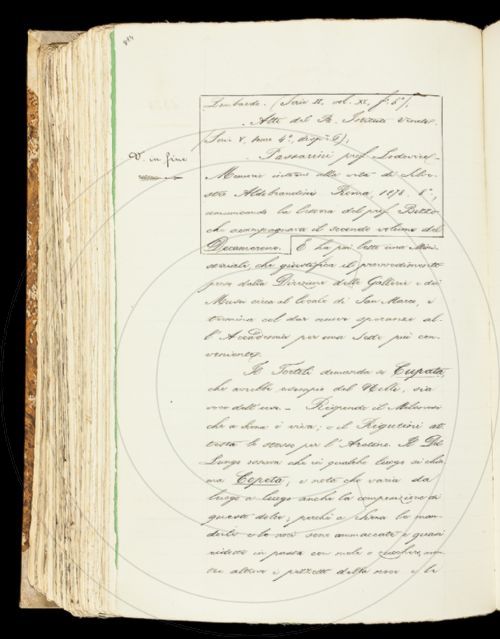 Lombardo. (Serie II, vol. XI, f.º 5º);
Atti del R. Istituto Veneto
(Serie V, tomo 4º, disp. 6);
V. in fine
Passarini prof. Lodovico –
Memorie intorno alla vita di Silve-
stro Aldobrandini Roma, 1878. 8º,
comunicando la lettera del prof.
che accompagnava il secondo volume del
Decamerone. E ha poi letto una Mini-
steriale, che giustifica il provvedimento
preso dalla Direzione delle Gallerie e dei
Musei circa al locale di San Marco, e
termina col dar nuove speranze al-
l'Accademia per una sede più con-
veniente.
Il Tortoli domanda se Cupata,
che avrebbe esempio del Nelli, sia
voce dell'uso – Risponde il Milanesi
che a Siena è viva; e il Rigutini at-
testa lo stesso per l'Aretino. Il Del
Lungo osserva che in qualche luogo si chia-
ma Copeta, e nota che varia da
luogo a luogo anche la composizione di
questo dolce; perchè a Siena le man-
dorle e le noci sono ammaccate e quasi
ridotte in pasta con mele o zucchero, men-
tre altrove i pezzetti delle noci e le